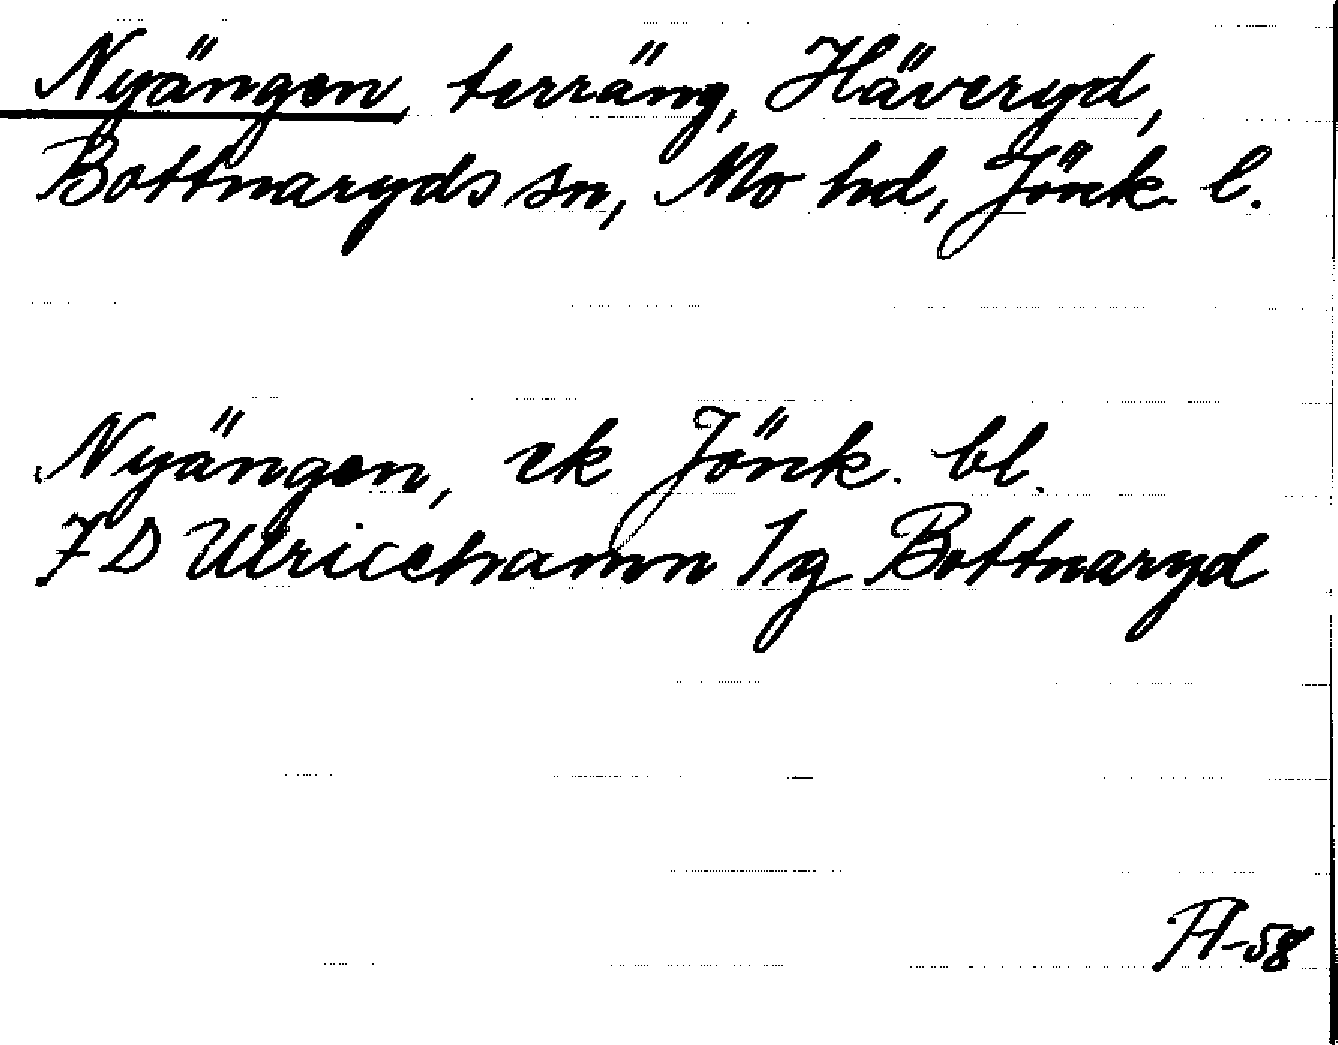 Nyängen, terräng, Häveryd,
Bottnaryds sn, Mo hd, Jönk. l.
Nyängen, ek Jönk. bl.
7D Ulricehamn 1g Bottnaryd
-58